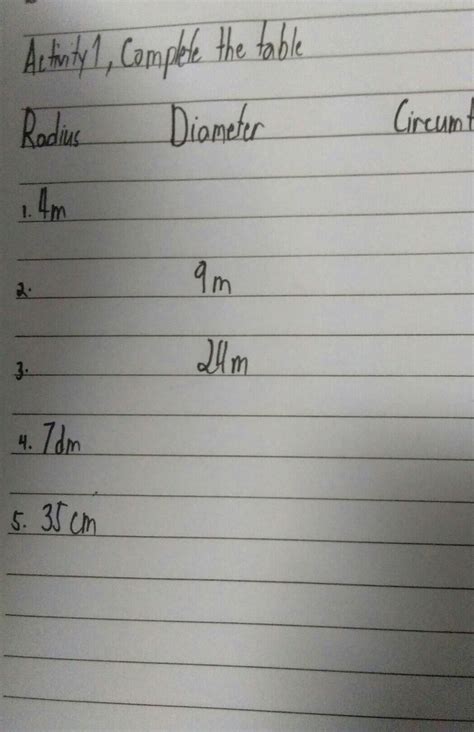 Activity 1, Complete the table
Radius Diameter Circumf
1. 4m
2. 9m
3. 24m
4. 7dm
5. 35 cm